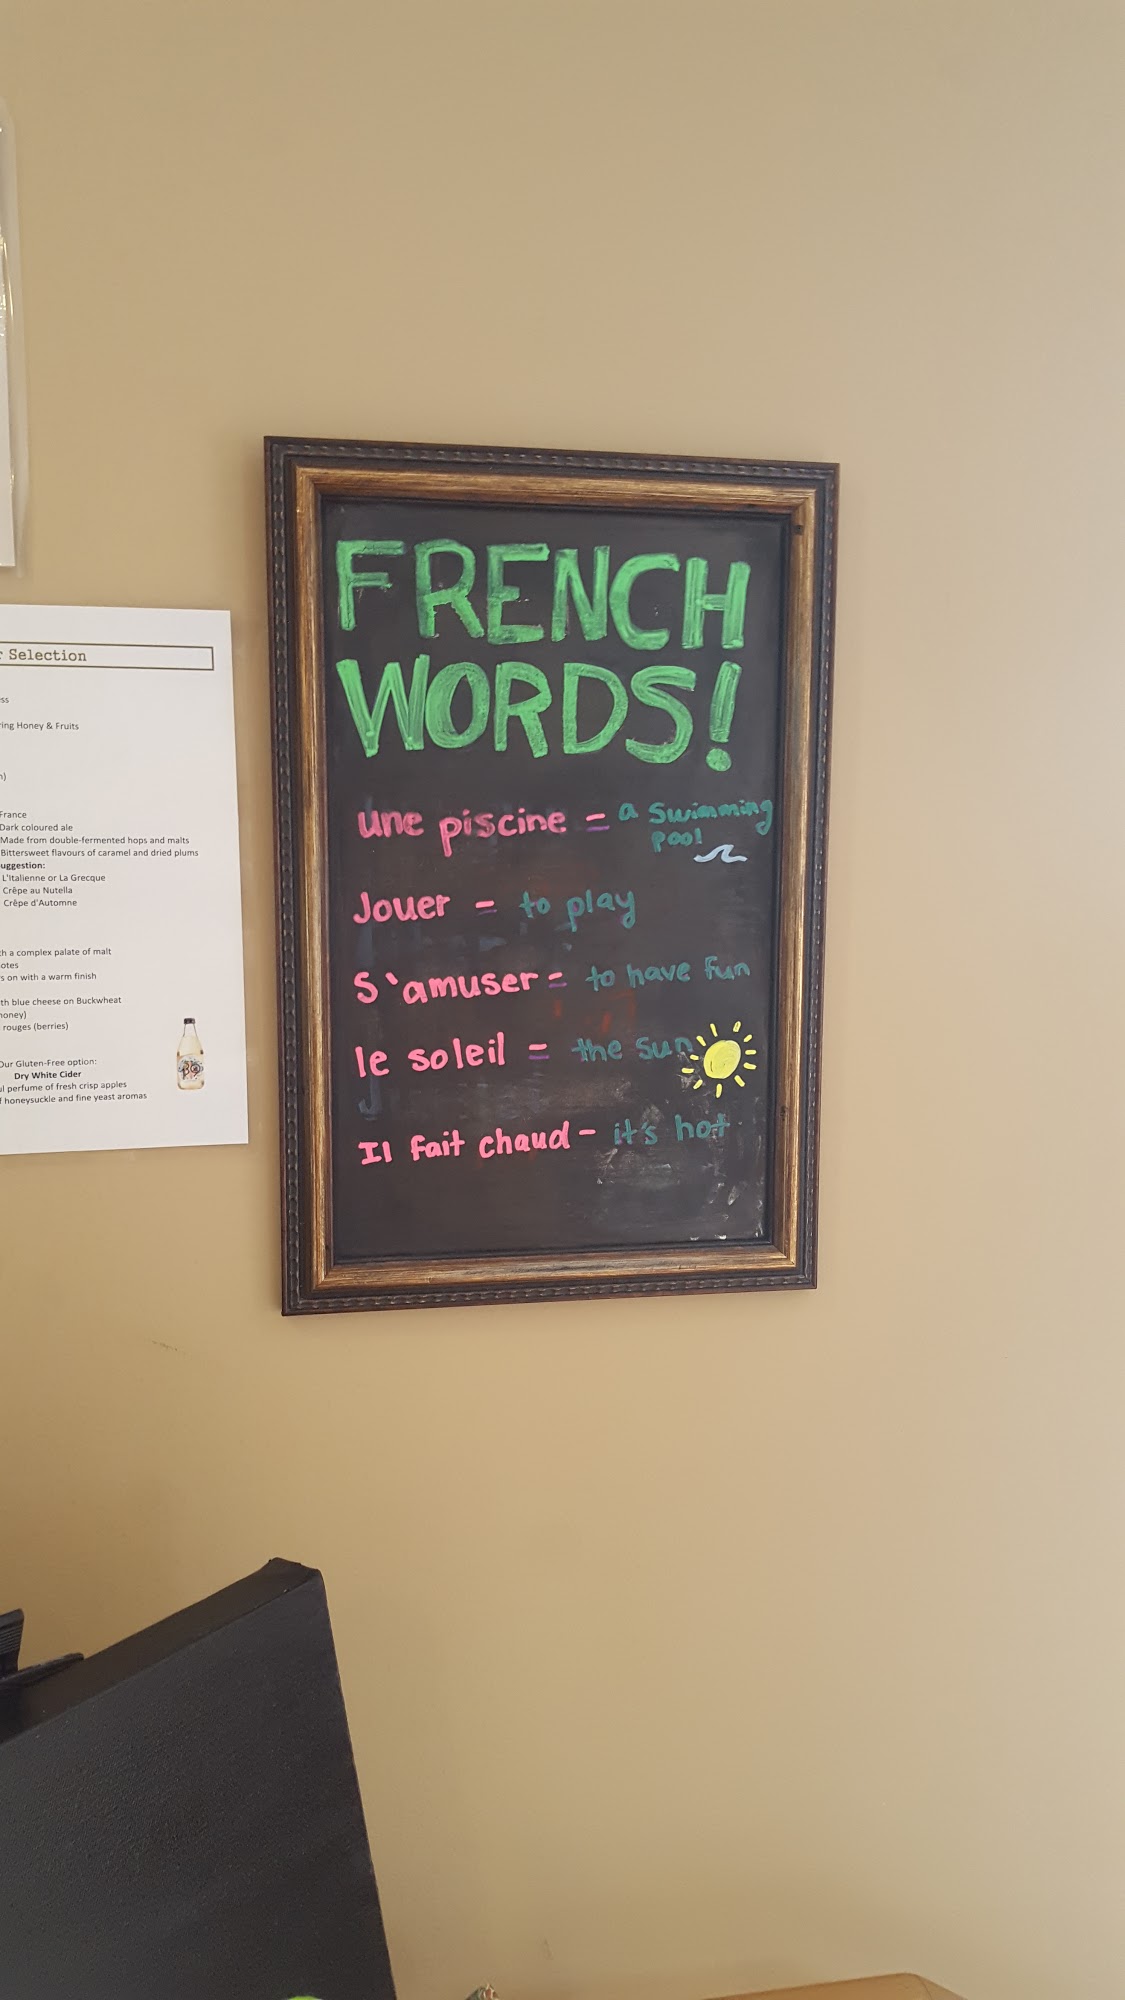 Selection
ss
ring Honey & Fruits
n)
France
Dark coloured ale
Made from double-fermented hops and malts
Bittersweet flavours of caramel and dried plums
uggestion:
L'Italienne or La Grecque
Crêpe au Nutella
Crêpe d'Automne
th a complex palate of malt
otes
s on with a warm finish
th blue cheese on Buckwheat
honey)
rouges (berries)
Our Gluten-Free option:
Dry White Cider
ul perfume of fresh crisp apples
f honeysuckle and fine yeast aromas
FRENCH
WORDS!
une piscine = a swimming
pool
Jouer = to play
S`amuser = to have fun
le soleil = the sun
Il fait chaud - it's hot